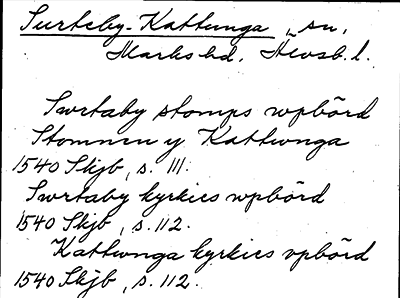 Surteby-Kattunga, sn,
Marks hd, Älvsb. l.
Swrtaby stomps wpbörd
Stommen y Kattwnga
1540 Skjb, s. 111.
Swrtaby kyrkies wpbörd
1540 Skjb, s. 112.
Kattwnga kyrkies vpbörd
1540 Skjb, s. 112.